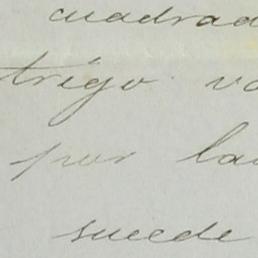 cuadrad
trigo va
por la
sucede